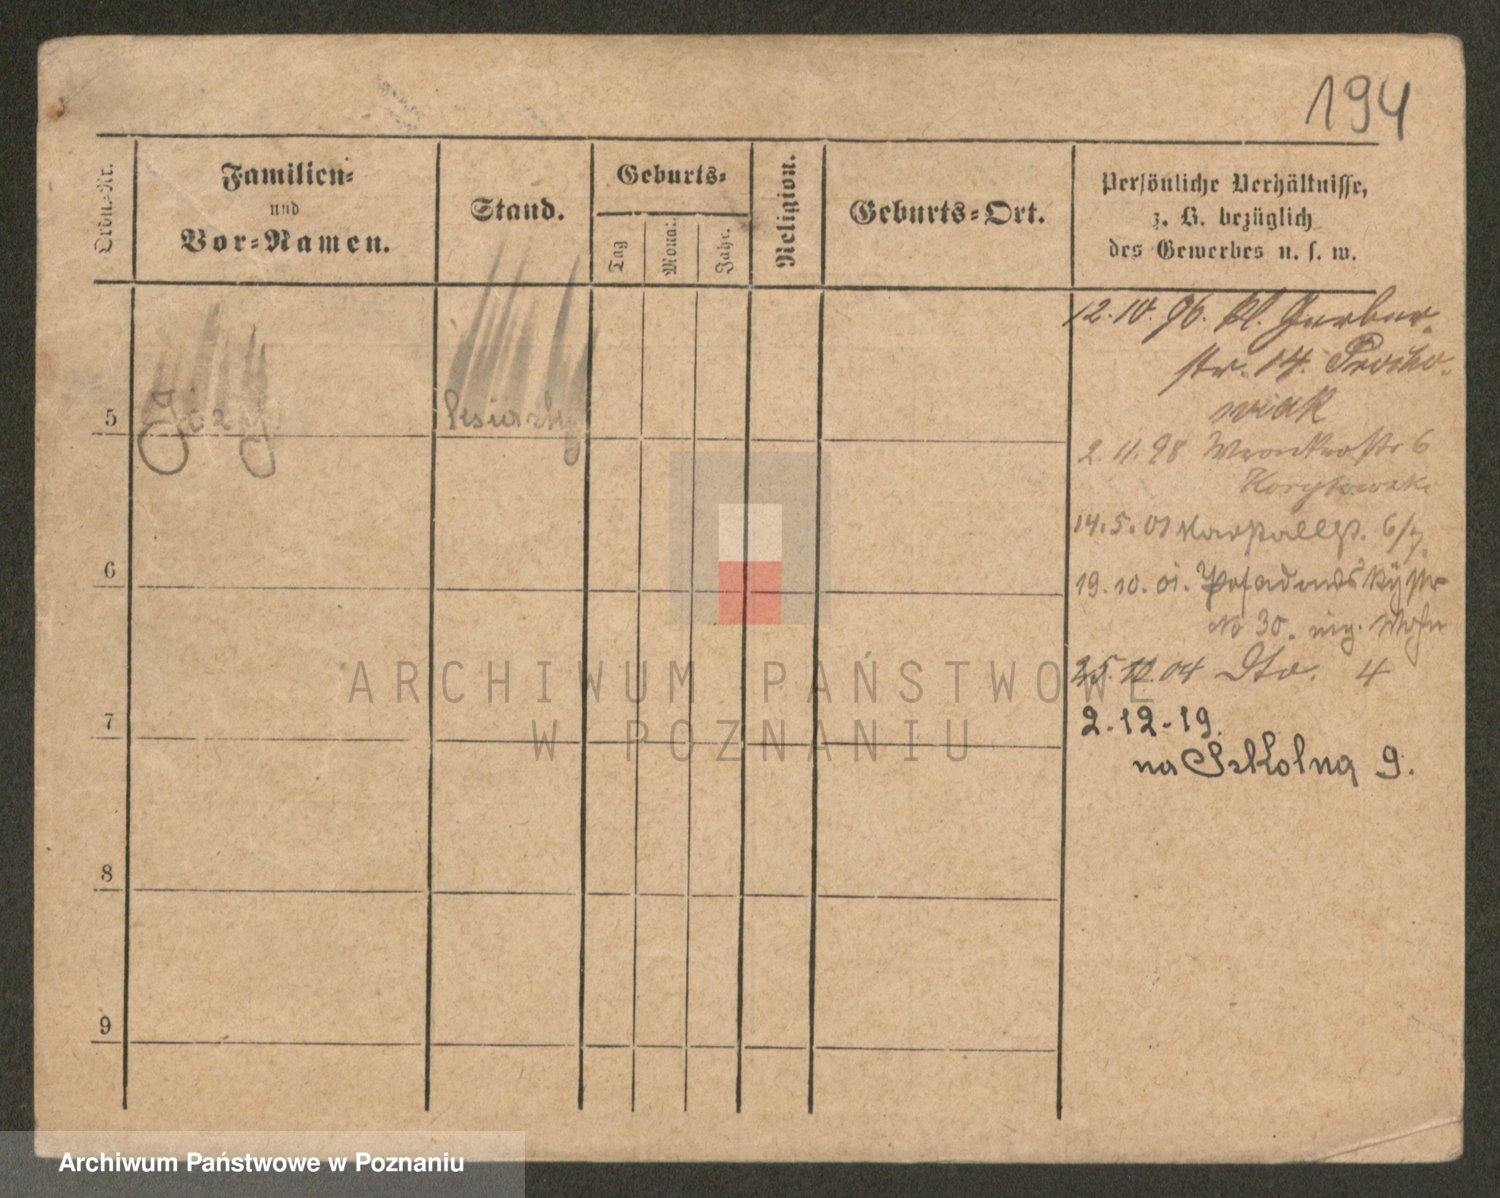 194
Ordn.-Nr.
Familien-
und
Vor-Namen.
Stand.
Geburts-
Tag
Monat
Jahr.
Religion.
Geburts-Ort.
Persönliche Verhältnisse,
z. B. bezüglich
des Gewerbes u. s. w.
5
6
7
8
9
12.10.96. kl. Gerber
str. 14.
wiak
2.11.98 Wronkerstr 6
14.5.01 6/7.
19.10.01. Posadowskystr
No 30. Wohn
25. 04 Dto. 4
2.12-19.
na Szkolną 9.
ARCHIWUM PAŃSTWOWE
W POZNANIU
Archiwum Państwowe w Poznaniu